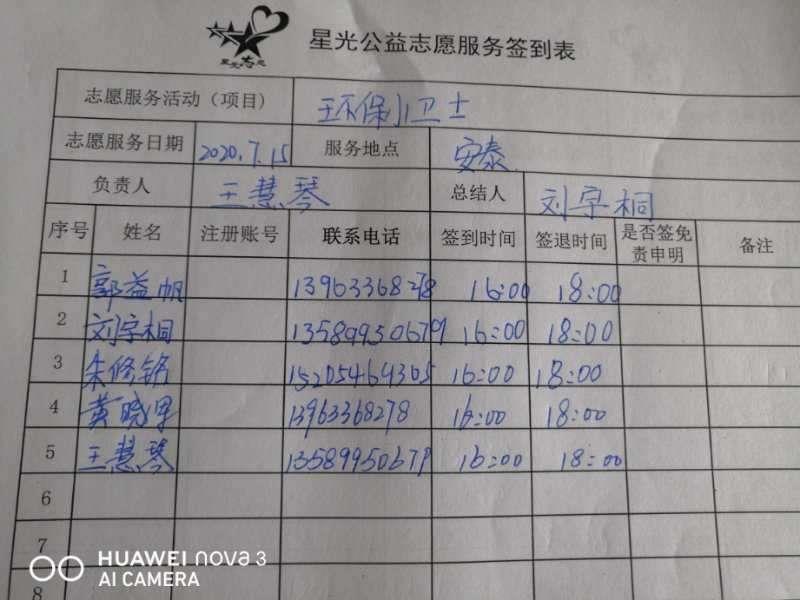 星光志愿
星光公益志愿服务签到表
志愿服务活动（项目） 环保小卫士
志愿服务日期 2020.7.15 服务地点 安泰
负责人 王慧琴 总结人 刘宇桐
序号 姓名 注册账号 联系电话 签到时间 签退时间 是否签免责申明 备注
1 郭益帆 13963368278 16:00 18:00
2 刘宇桐 13589950679 16:00 18:00
3 朱修铭 15205464305 16:00 18:00
4 黄晓 13963368278 16:00 18:00
5 王慧琴 13589950679 16:00 18:00
6
7
8
HUAWEI nova 3
AI CAMERA